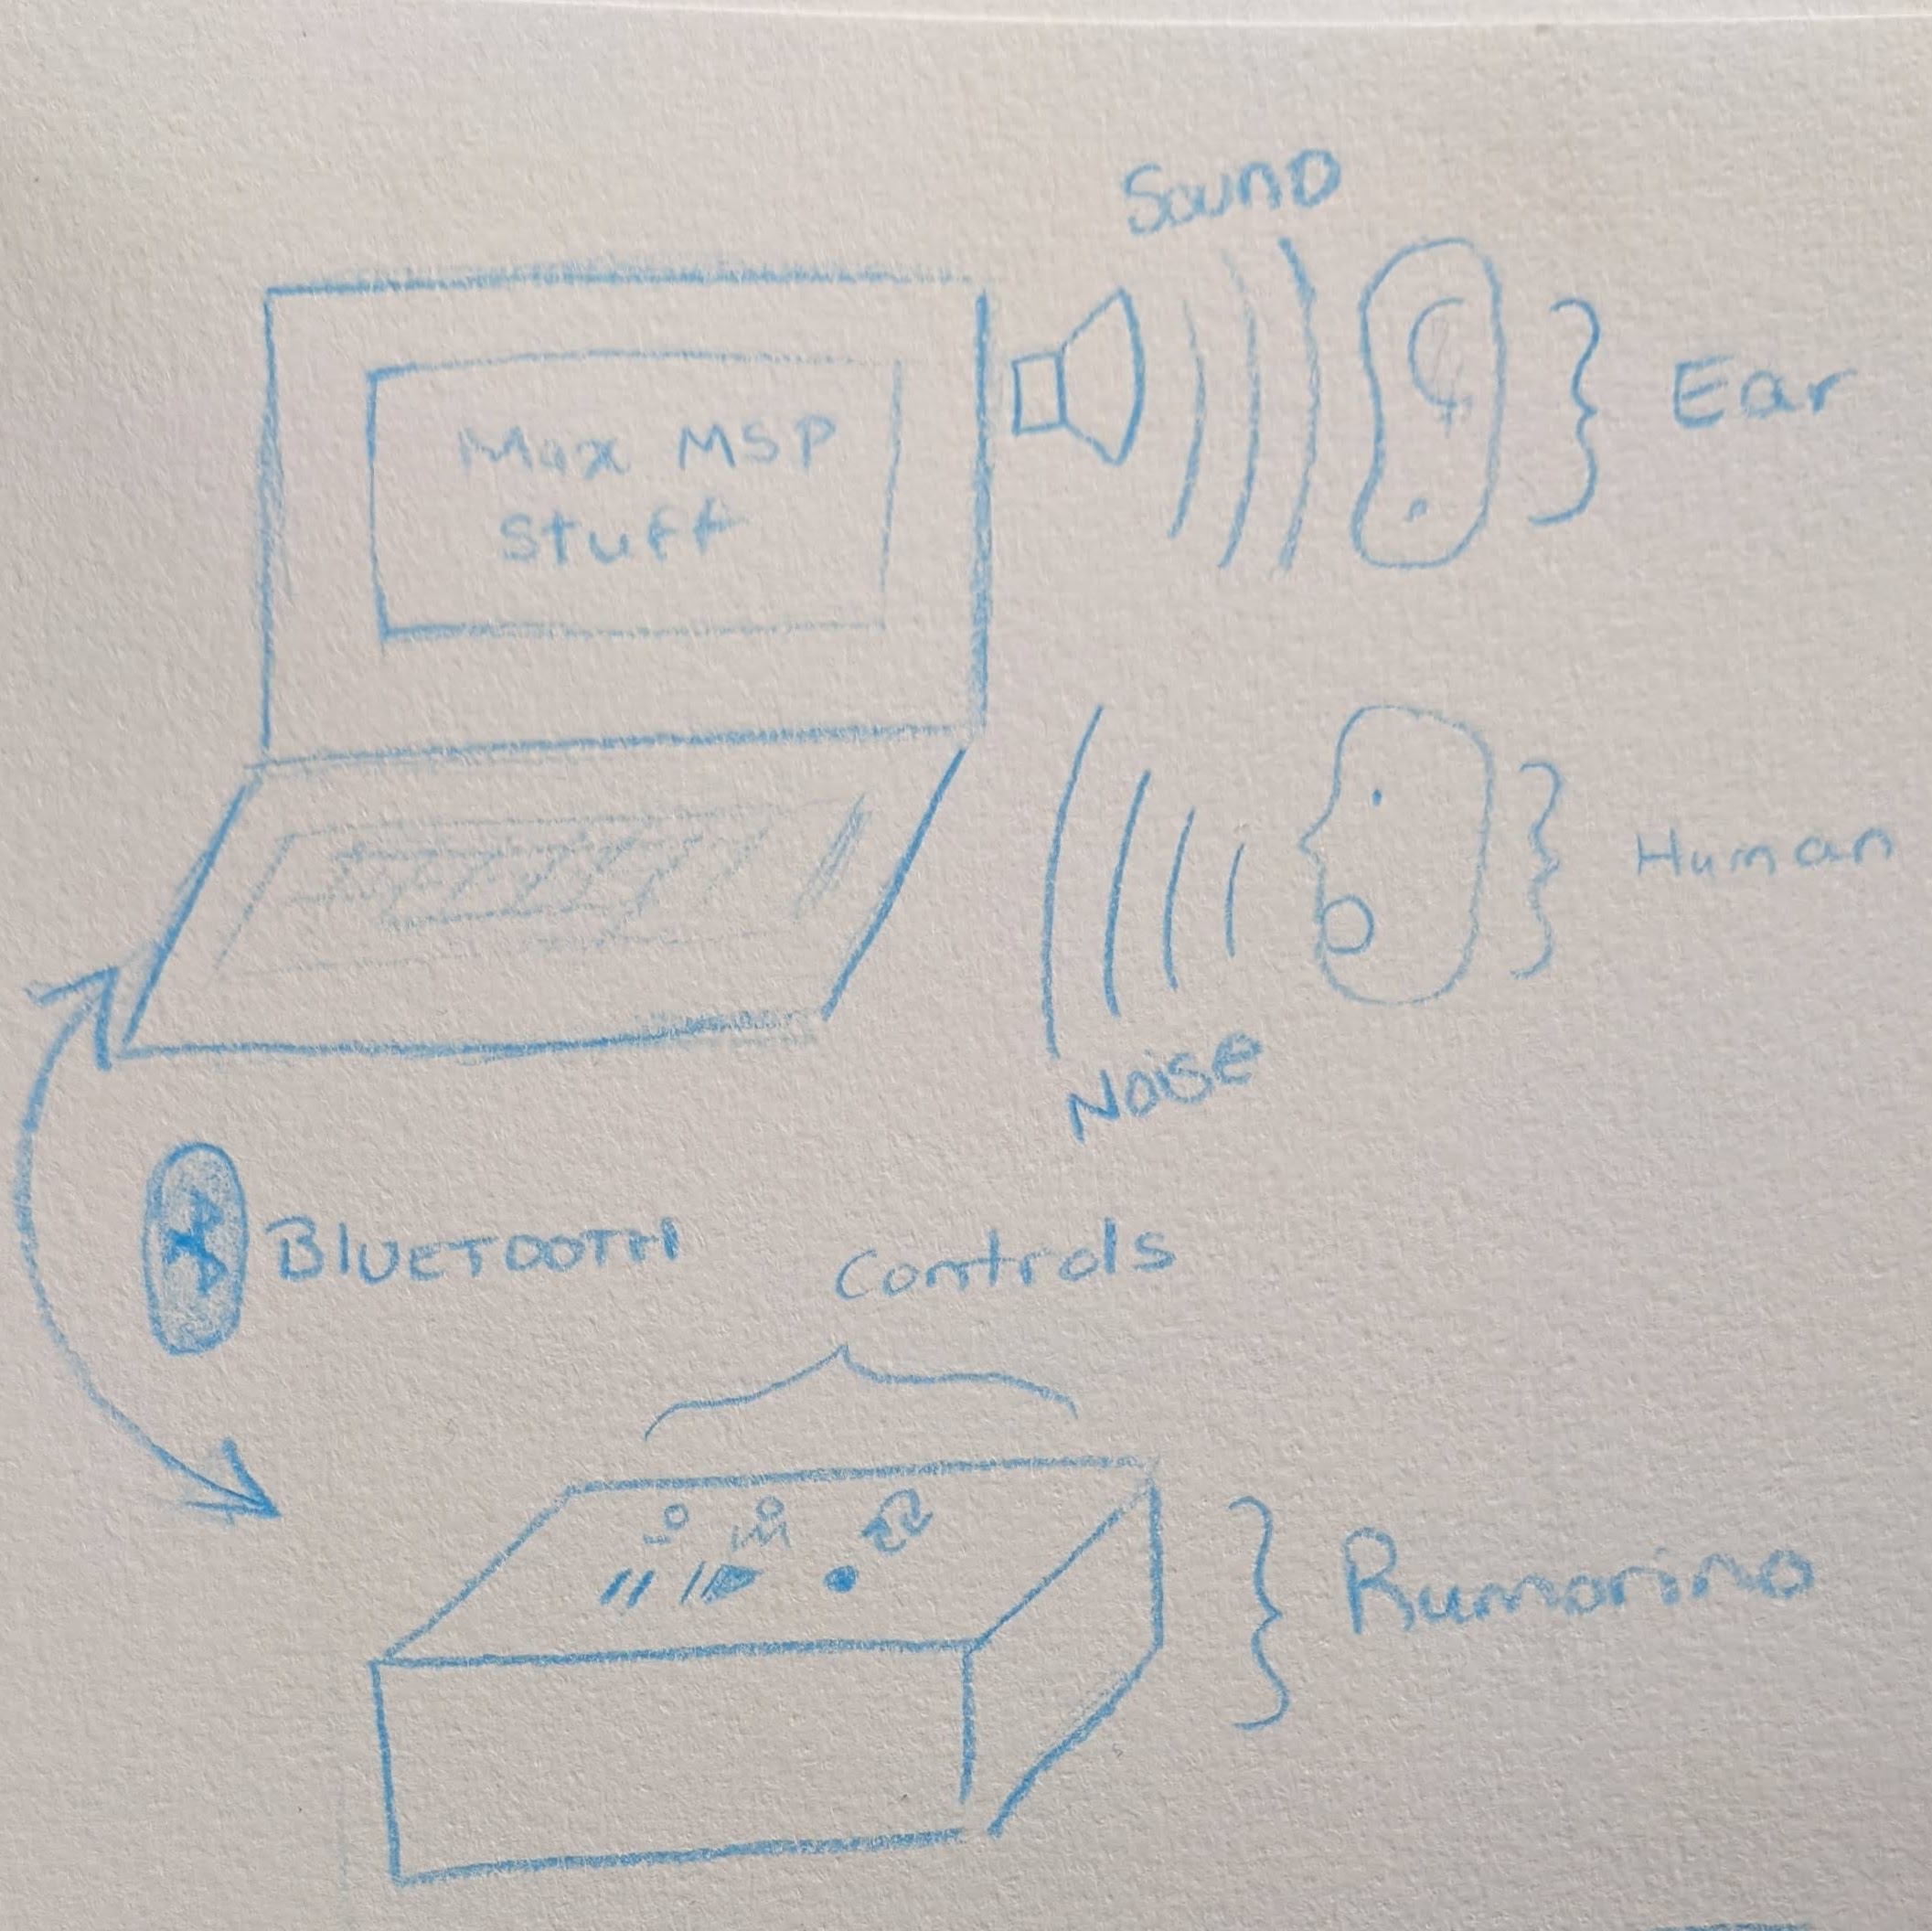 Sound
Max MSP
Stuff
Ear
Human
Noise
BLUETOOTH
Controls
Rumorino